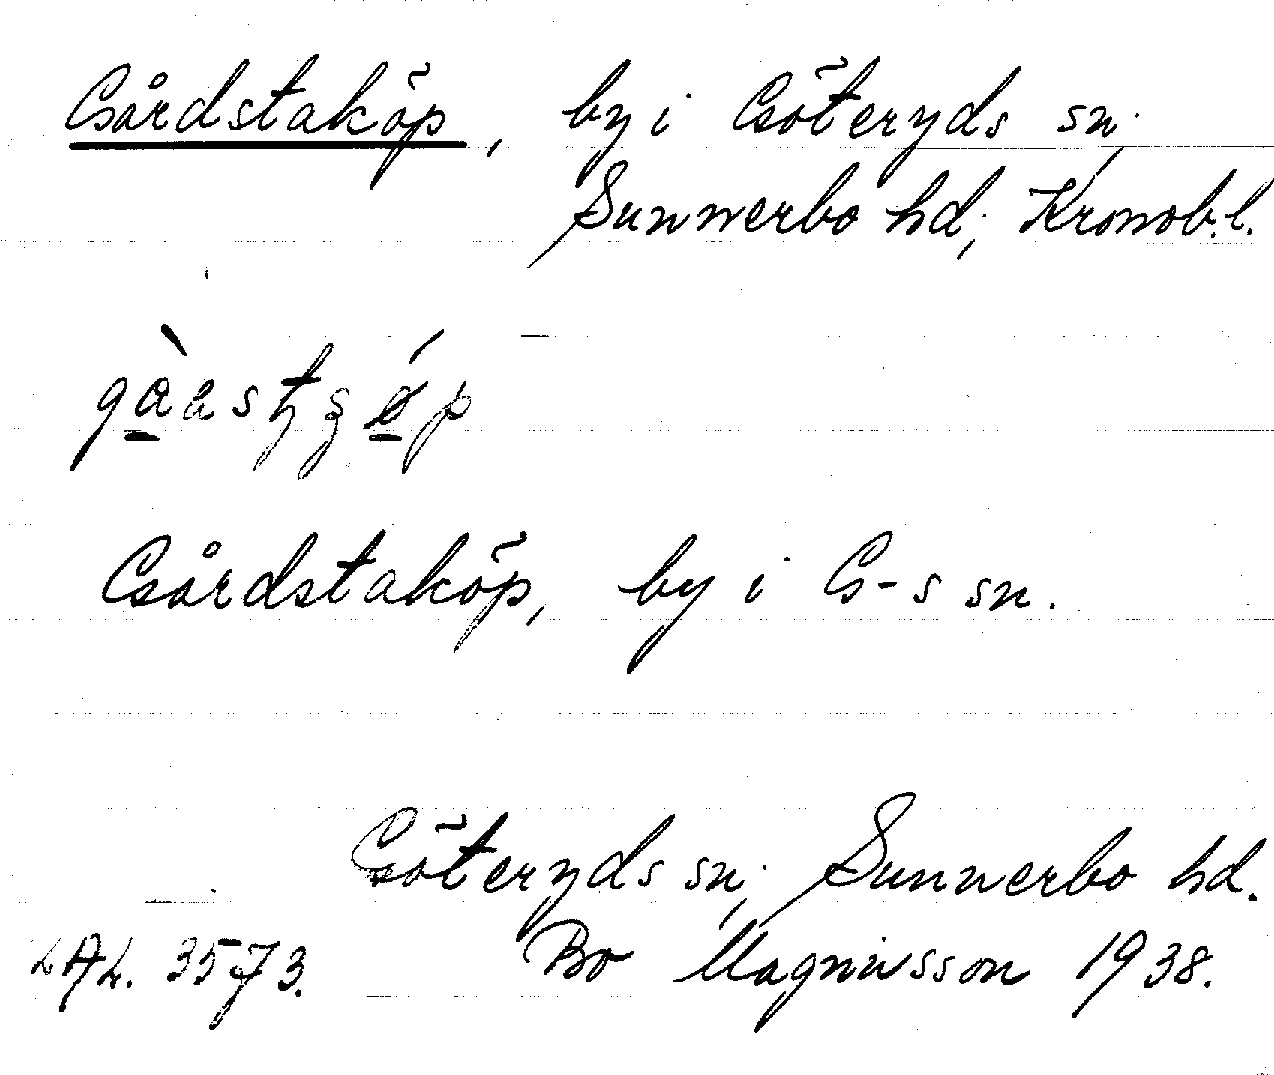 Gårdstaköp, by i Göteryds sn.,
Sunnerbo hd., Kronob. l.
Gårdstaköp, by i G-s sn.
Göteryds sn., Sunnerbo hd.
LAL. 3573. Bo Magnusson 1938.